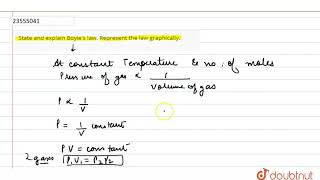 23555041
State and explain Boyle's law. Represent the law graphically.
At constant Temperature & no. of moles
Pressure of gas ∝ 1/Volume of gas
P ∝ 1/V
P = 1/V constant
PV = constant
2 gases P₁V₁ = P₂V₂
doubtnut